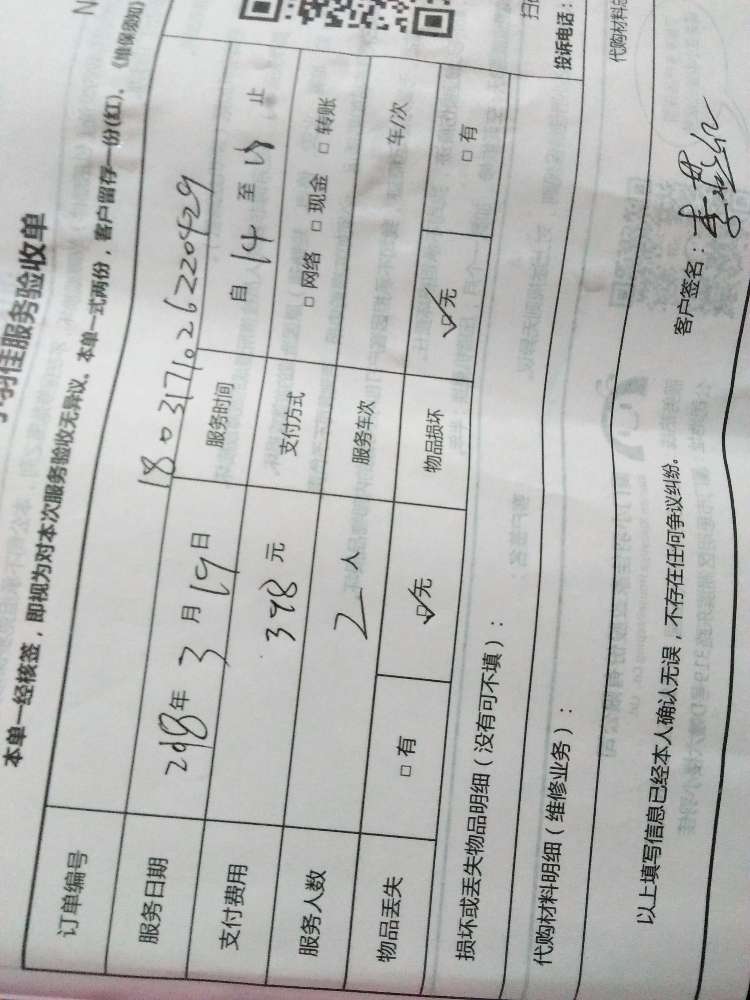 羽佳服务验收单
本单一经核签，即视为对本次服务验收无异议。本单一式两份，客户留存一份(红)。《维保须知》
订单编号 1803171026220429
服务日期 2018年 3 月 19 日 服务时间 自 14 至 18 止
支付费用 378 元 支付方式 □ 网络 □ 现金 □ 转账
服务人数 2 人 服务车次 车/次
物品丢失 □ 有 ☑无 物品损坏 ☑无 □ 有
损坏或丢失物品明细（没有可不填）：
代购材料明细（维修业务）：
投诉电话：
代购材料总
以上填写信息已经本人确认无误，不存在任何争议纠纷。 客户签名：